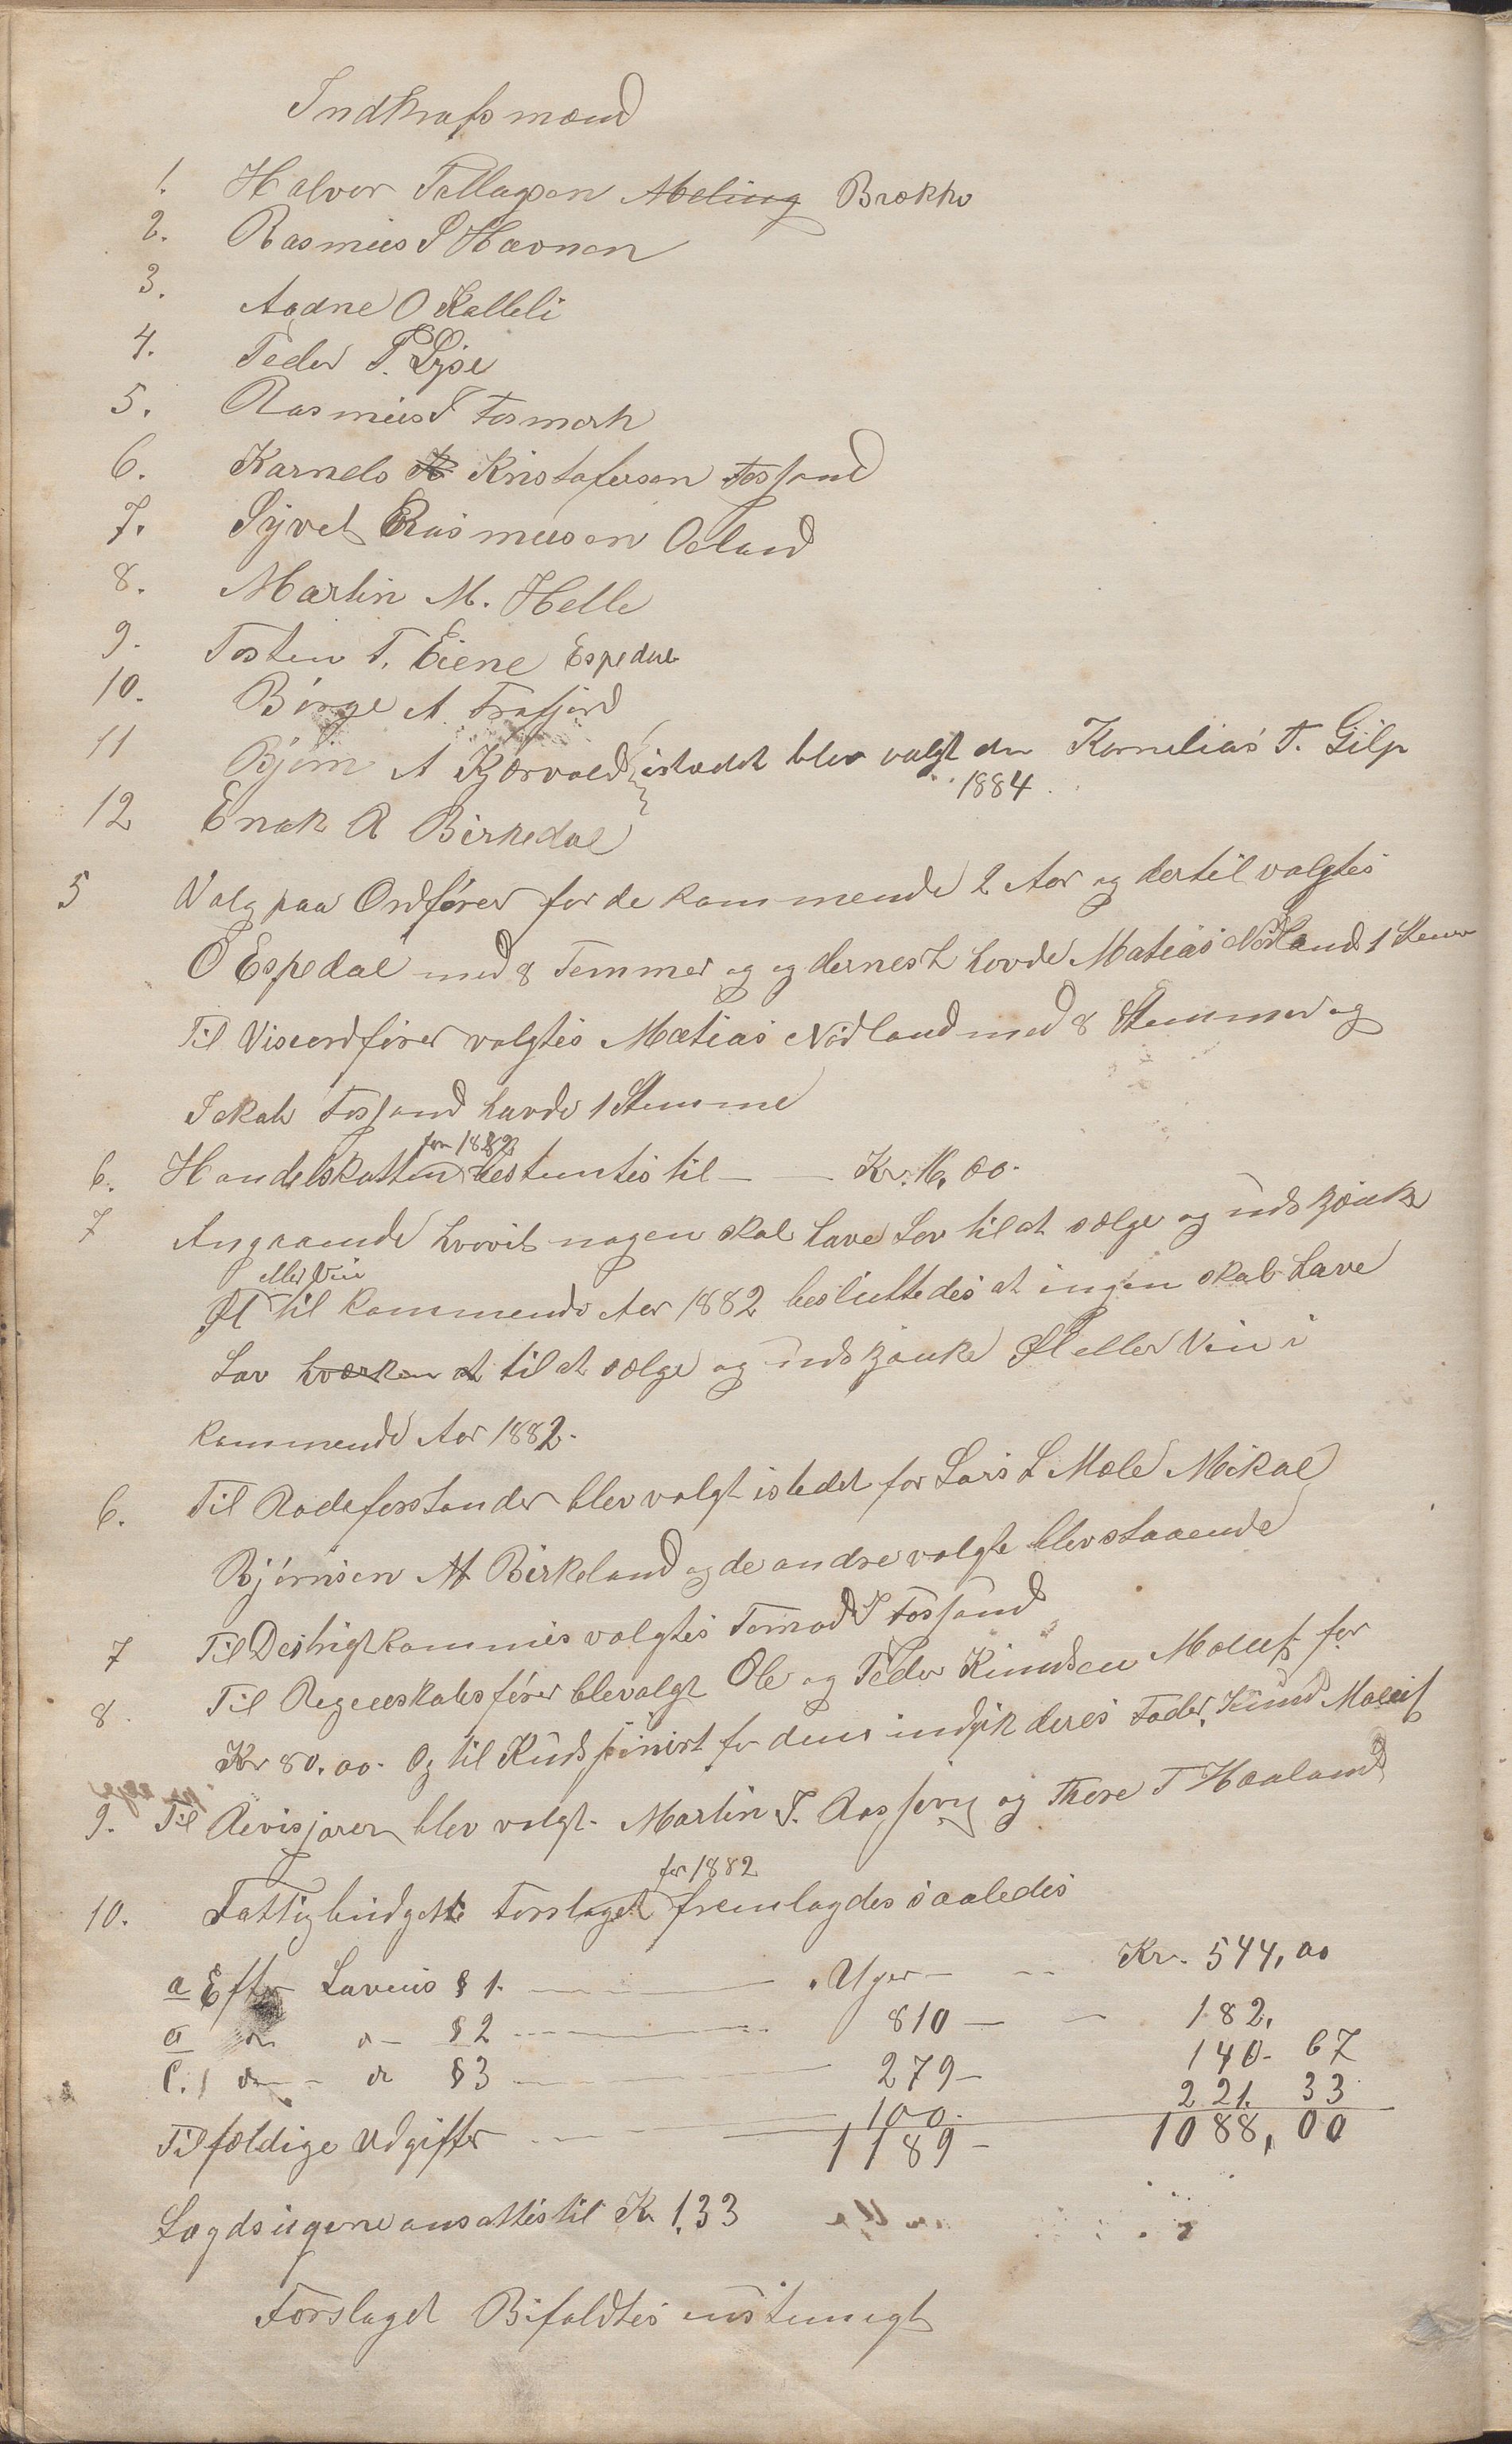 Indkrafs mænd
1. Halvor Tallagsen Meling Brækko
2. Rasmus P Havnen
3. Aadne O Kalleli
4. Peder P. Lyse
5. Rasmus T Fosmark
6. Karnels A Kristofersen Fossand
7. Syvet Rasmusen Oeland
8. Martin M. Helle
9. Tosten T. Eiene Espedal
10. Börge A. Frafjord
11 Bjørn A Kjærvold istædet blev valgt den Kornelius T. Gilje
1884
12 Enok R Birkedal
5 Valg paa Ordfører for de kommende 2 Aar og dertil valgtes
O Espedal med 8 Temmer og og dernest hovde Matias Nödland 1 Stemme
Til Viseordfører valgtes Matias Nödland med 8 Stemmer og
Fossand havde 1 Stemme
for 1882
6. Handelskatten bestemtes til — — Kr. 16,00.
7 Angaaende hvorvit nogen skal have Lov til at sælge og udskjænke
eller Vin
Øl til kommende Aar 1882 besluttedes at ingen skal have
Lov hværken at til at sælge og udskjænke Øl eller Vin i
kommende Aar 1882.
6. Til Rodeforstander blev valgt istedet for Lars L Mæle Mikal
Bjørnsen M Birkeland og de andre valgte blev staaende
7 Til Destrigtkommis valgtes Tomod T Fossand
8. Til Regneskabsfører blevalgt Ole og Peder Knudsen for
Kr 80.00. Og til for dem indgik deres Fader, Knud
9. Til Revisjorer blev valgt. Martin T. og Thore T Haaland
for 1882
10. Fattigbudgette Forslaget fremlagdes saaledes
a Efter Lovens § 1. — Uger — -- Kr. 544,00
a do do § 2 — 810 — — 182.
C. do - do § 3 — 279 — 140. 67
100. 221. 33
Tilfældige Udgifter — 1189 — 1088,00
Lægdsugene ansattes til Kr 1.33
Forslaget Bifaldtes enstemigt